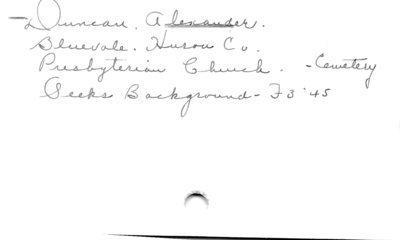 Duncan, Alexander.
Bluevale. Huron Co.
Presbyterian Church. - Cemetery
Seeks Background - F3 '45